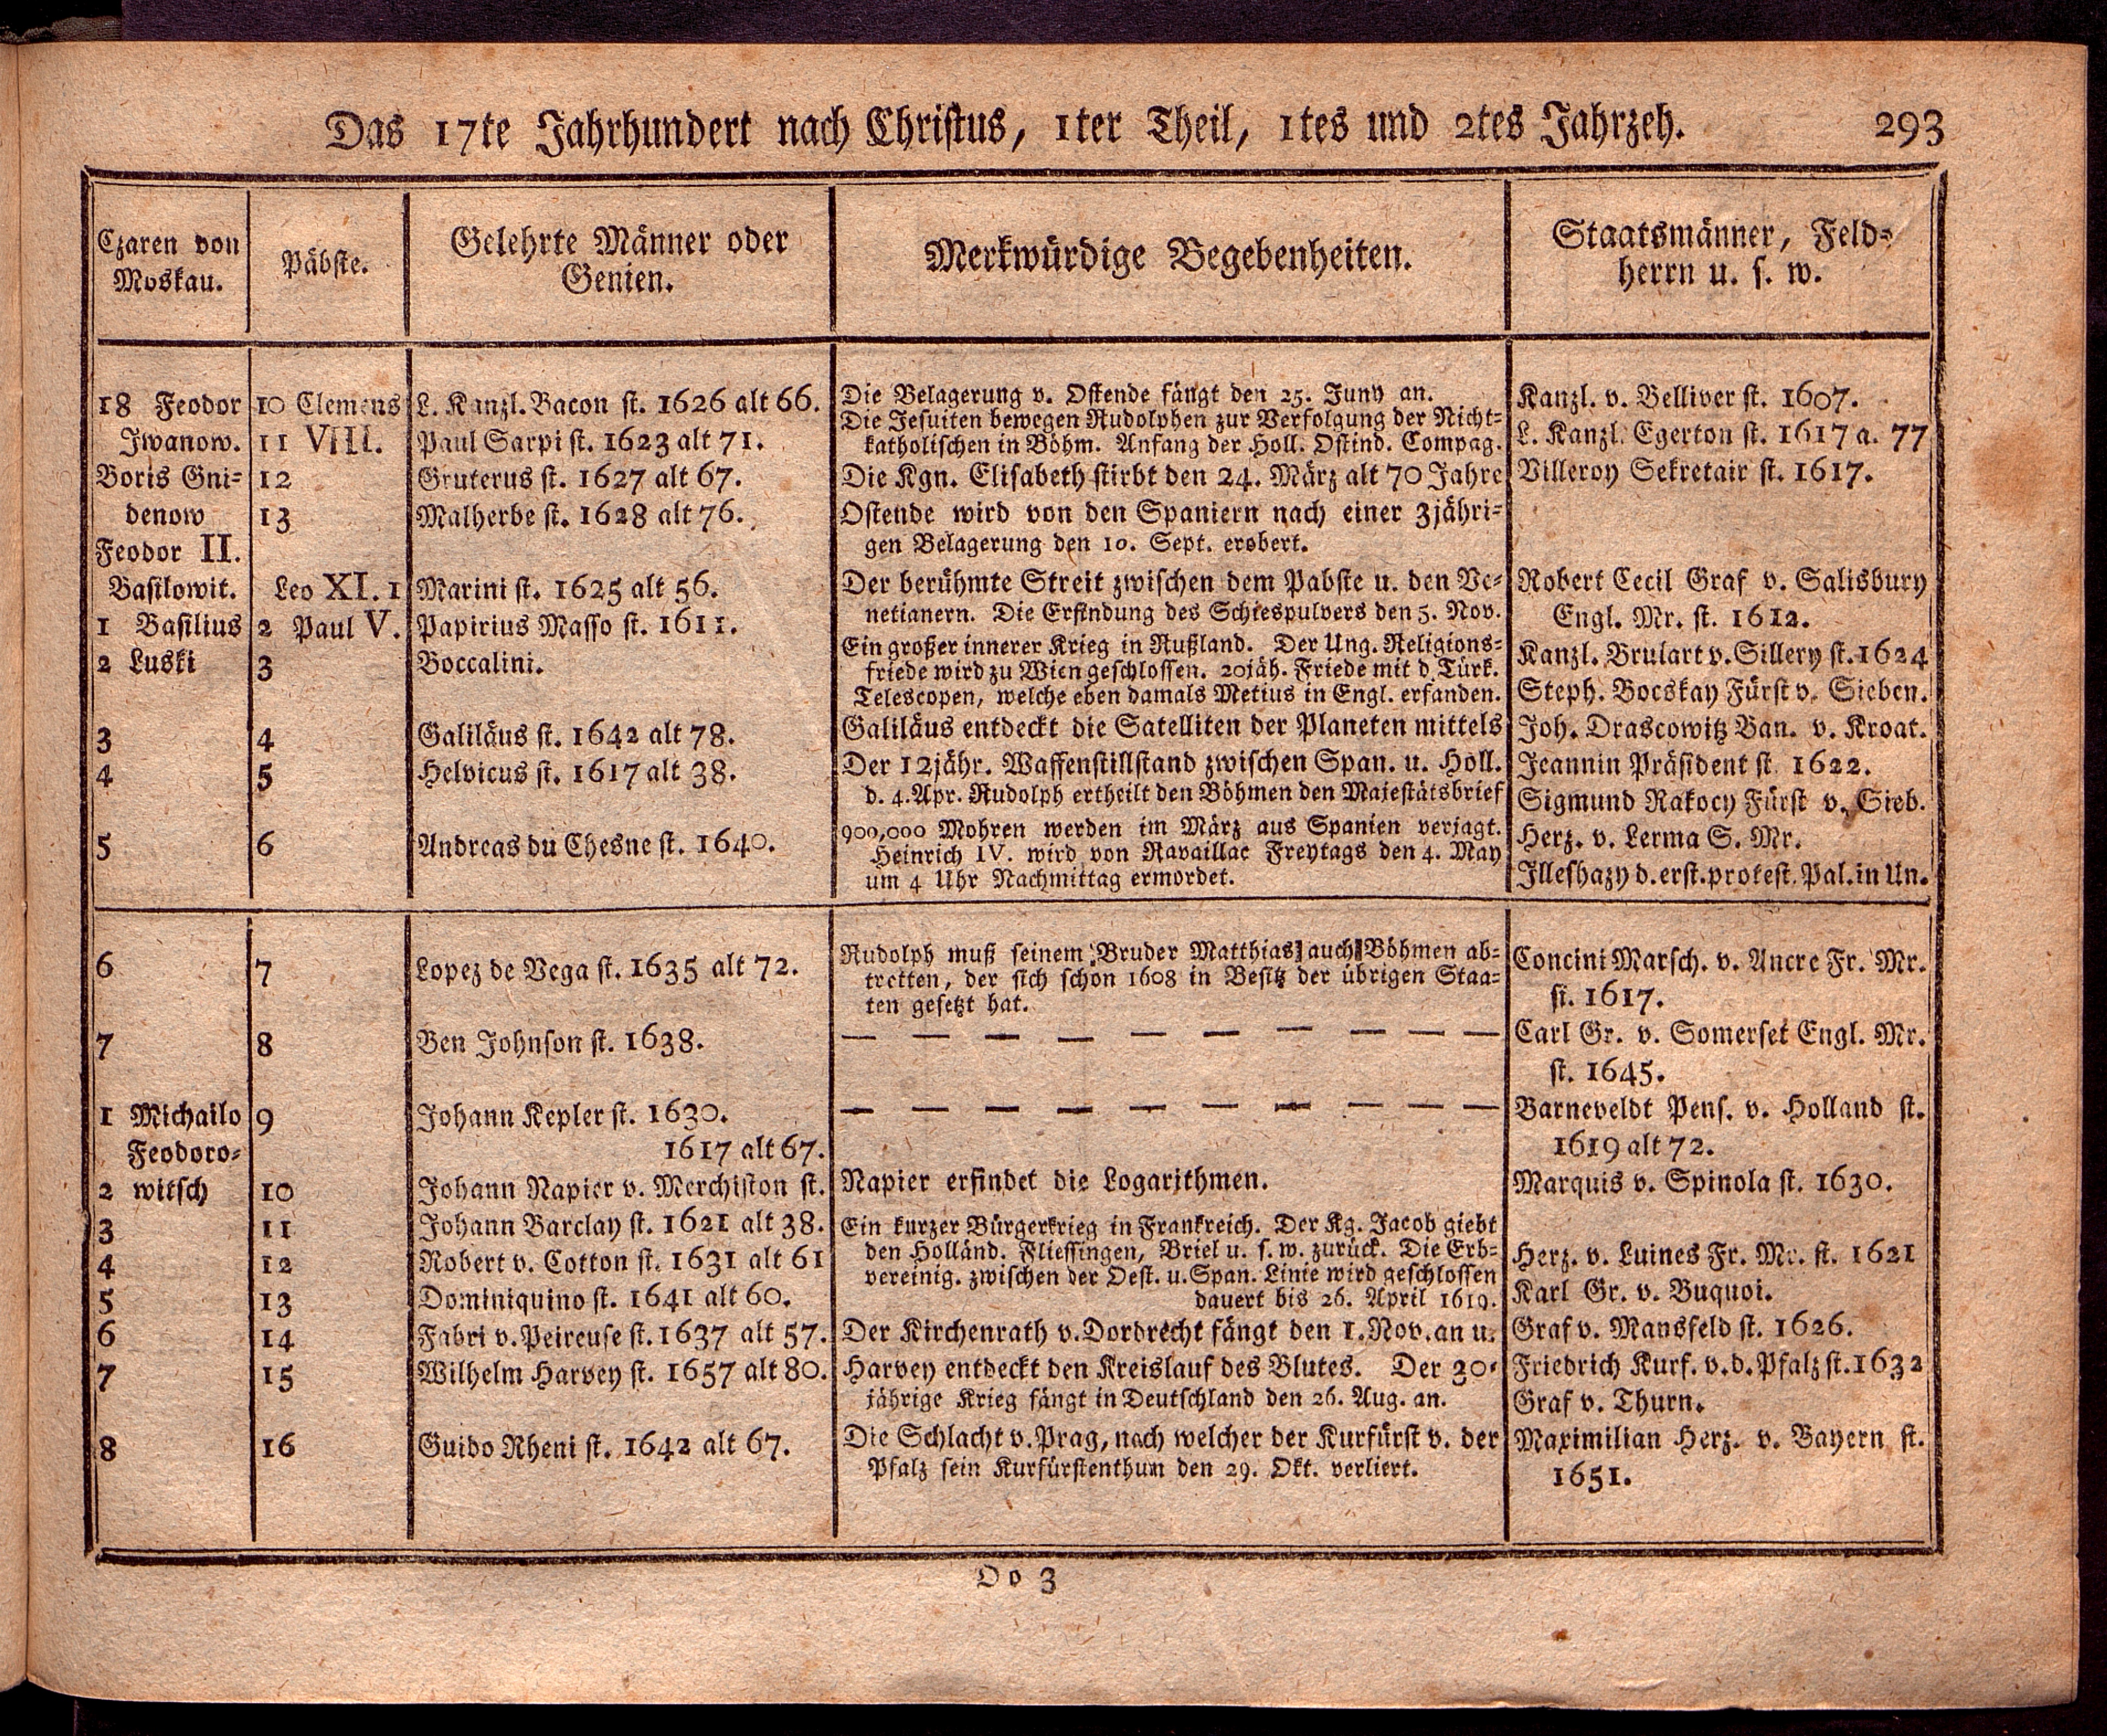 Das 17te Jahrhundert nach Christus, 1ter Theil, 1tes und 2tes Jahrzeh. 293
Czaren von
Moskau.
Päbste.
Gelehrte Männer oder
Genien.
Merkwürdige Begebenheiten.
Staatsmänner, Feld-
herrn u. s. w.
18 Feodor
Iwanow.
Boris Gni-
denow
Feodor II.
Basilowit.
1 Basilius
2 Luski
3
4
5
10 Clemens
11 VIII.
12
13
Leo XI. 1
2 Paul V.
3
4
5
6
L. Kanzl. Bacon st. 1626 alt 66.
Paul Sarpi st. 1623 alt 71.
Gruterus st. 1627 alt 67.
Malherbe st. 1628 alt 76.
Marini st. 1625 alt 56.
Papirius Masso st. 1611.
Boccalini.
Galiläus st. 1642 alt 78.
Helvicus st. 1617 alt 38.
Andreas du Chesne st. 1640.
Die Belagerung v. Ostende fängt den 25. Juny an.
Die Jesuiten bewegen Rudolphen zur Verfolgung der Nicht-
katholischen in Böhm. Anfang der Holl. Ostind. Compag.
Die Kgn. Elisabeth stirbt den 24. März alt 70 Jahre
Ostende wird von den Spaniern nach einer 3jähri-
gen Belagerung den 10. Sept. erobert.
Der berühmte Streit zwischen dem Pabste u. den Ve-
netianern. Die Erfindung des Schiespulvers den 5. Nov.
Ein großer innerer Krieg in Rußland. Der Ung. Religions-
friede wird zu Wien geschlossen. 20jäh. Friede mit d. Türk.
Telescopen, welche eben damals Metius in Engl. erfanden.
Galiläus entdeckt die Satelliten der Planeten mittels
Der 12jähr. Waffenstillstand zwischen Span. u. Holl.
d. 4. Apr. Rudolph ertheilt den Böhmen den Majestätsbrief
900,000 Mohren werden im März aus Spanien verjagt.
Heinrich IV. wird von Ravaillac Freytags den 4. May
um 4 Uhr Nachmittag ermordet.
Kanzl. v. Belliver st. 1607.
L. Kanzl. Egerton st. 1617 a. 77
Villeroy Sekretair st. 1617.
Robert Cecil Graf v. Salisbury
Engl. Mr. st. 1612.
Kanzl. Brulart v. Sillery st. 1624
Steph. Bocskay Fürst v. Sieben.
Joh. Drascowitz Ban. v. Kroat.
Jeannin Präsident st. 1622.
Sigmund Rakocy Fürst v. Sieb.
Herz. v. Lerma S. Mr.
Illeshazy d. erst. protest. Pal. in Un.
6
7
1 Michailo
Feodoro-
2 witsch
3
4
5
6
7
8
7
8
9
10
11
12
13
14
15
16
Lopez de Vega st. 1635 alt 72.
Ben Johnson st. 1638.
Johann Kepler st. 1630.
1617 alt 67.
Johann Napier v. Merchiston st.
Johann Barclay st. 1621 alt 38.
Robert v. Cotton st. 1631 alt 61
Dominiquino st. 1641 alt 60.
Fabri v. Peireuse st. 1637 alt 57.
Wilhelm Harvey st. 1657 alt 80.
Guido Rheni st. 1642 alt 67.
Rudolph muß seinem Bruder Matthias auch Böhmen ab-
tretten, der sich schon 1608 in Besitz der übrigen Staa-
ten gesetzt hat.
— — — — — — — — — —
— — — — — — — — — —
Napier erfindet die Logarithmen.
Ein kurzer Bürgerkrieg in Frankreich. Der Kg. Jacob giebt
den Holländ. Fliessingen, Briel u. s. w. zurück. Die Erb-
vereinig. zwischen der Oest. u. Span. Linie wird geschlossen
dauert bis 26. April 1619.
Der Kirchenrath v. Dordrecht fängt den 1. Nov. an u.
Harvey entdeckt den Kreislauf des Blutes. Der 30-
jährige Krieg fängt in Deutschland den 26. Aug. an.
Die Schlacht v. Prag, nach welcher der Kurfürst v. der
Pfalz sein Kurfürstenthum den 29. Okt. verliert.
Concini Marsch. v. Ancre Fr. Mr.
st. 1617.
Carl Gr. v. Somerset Engl. Mr.
st. 1645.
Barneveldt Pens. v. Holland st.
1619 alt 72.
Marquis v. Spinola st. 1630.
Herz. v. Luines Fr. Mr. st. 1621
Karl Gr. v. Buquoi.
Graf v. Mansfeld st. 1626.
Friedrich Kurf. v. d. Pfalz st. 1632
Graf v. Thurn.
Maximilian Herz. v. Bayern st.
1651.
Oo 3